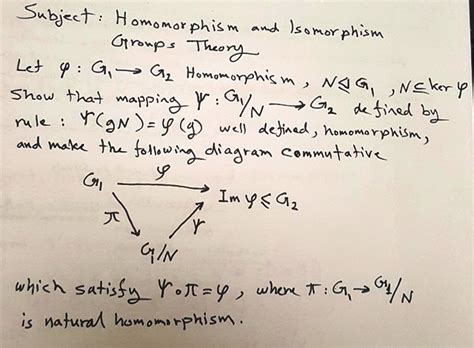 Subject: Homomorphism and Isomorphism
Groups Theory
Let φ : G₁ → G₂ Homomorphism, N ⊴ G₁, N ⊆ ker φ
Show that mapping Ψ : G₁/N → G₂ defined by
rule : Ψ(gN) = φ(g) well defined, homomorphism,
and make the following diagram commutative
G₁ φ Im φ ⩽ G₂
π Ψ
G₁/N
which satisfy Ψ∘π = φ, where π : G₁ → G₁/N
is natural homomorphism.